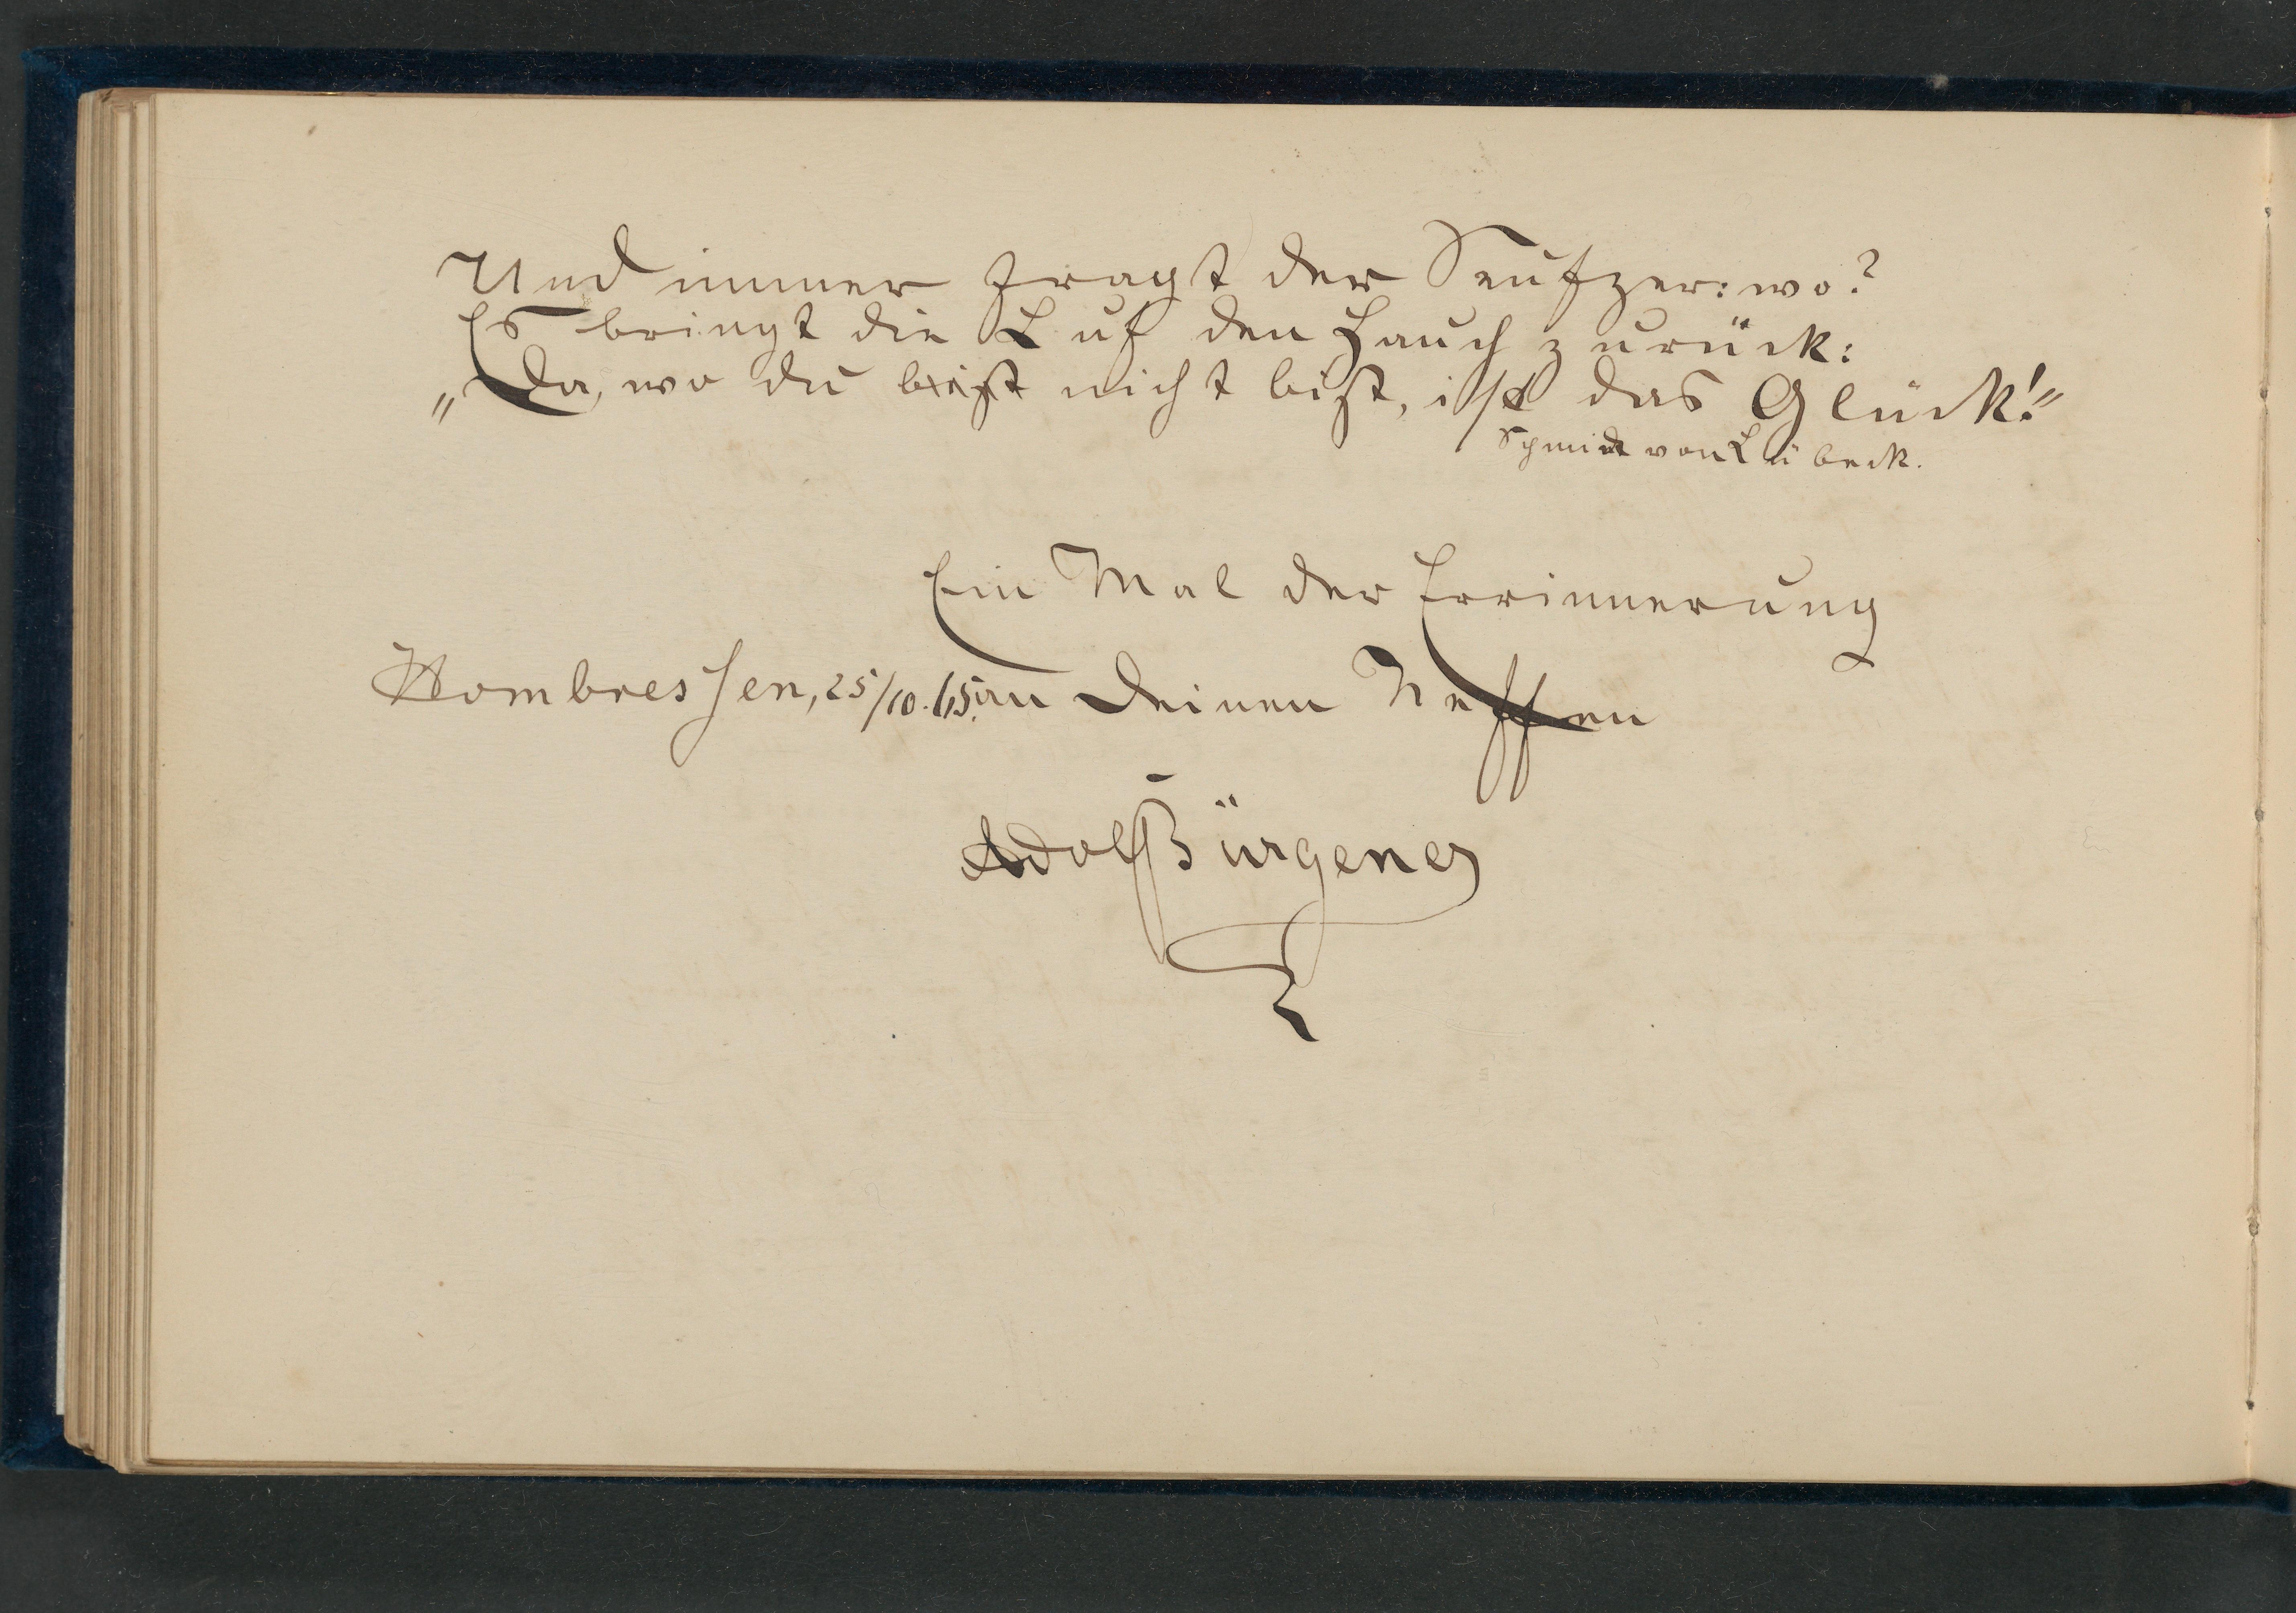 Und immer fragt der Seufzer: wo?
Es bringt die Luf den Hauch zurück:
„Da, wo du bist nicht bist, ist das Glück!"
Schmidt von Lübeck.
Ein Mal der Errinnerung
Hombressen, 25/10. 65. an Deinen Neffen
Adolf Bürgener